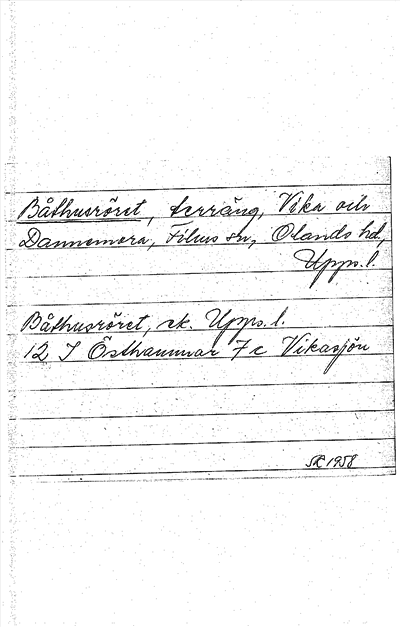 Båthusröret, terräng, Vika och
Dannemora, Films sn, Olands hd,
Upps. l.
Båthusröret, ek. Upps. l.
12 I Östhammar 7c Vikasjön
1958